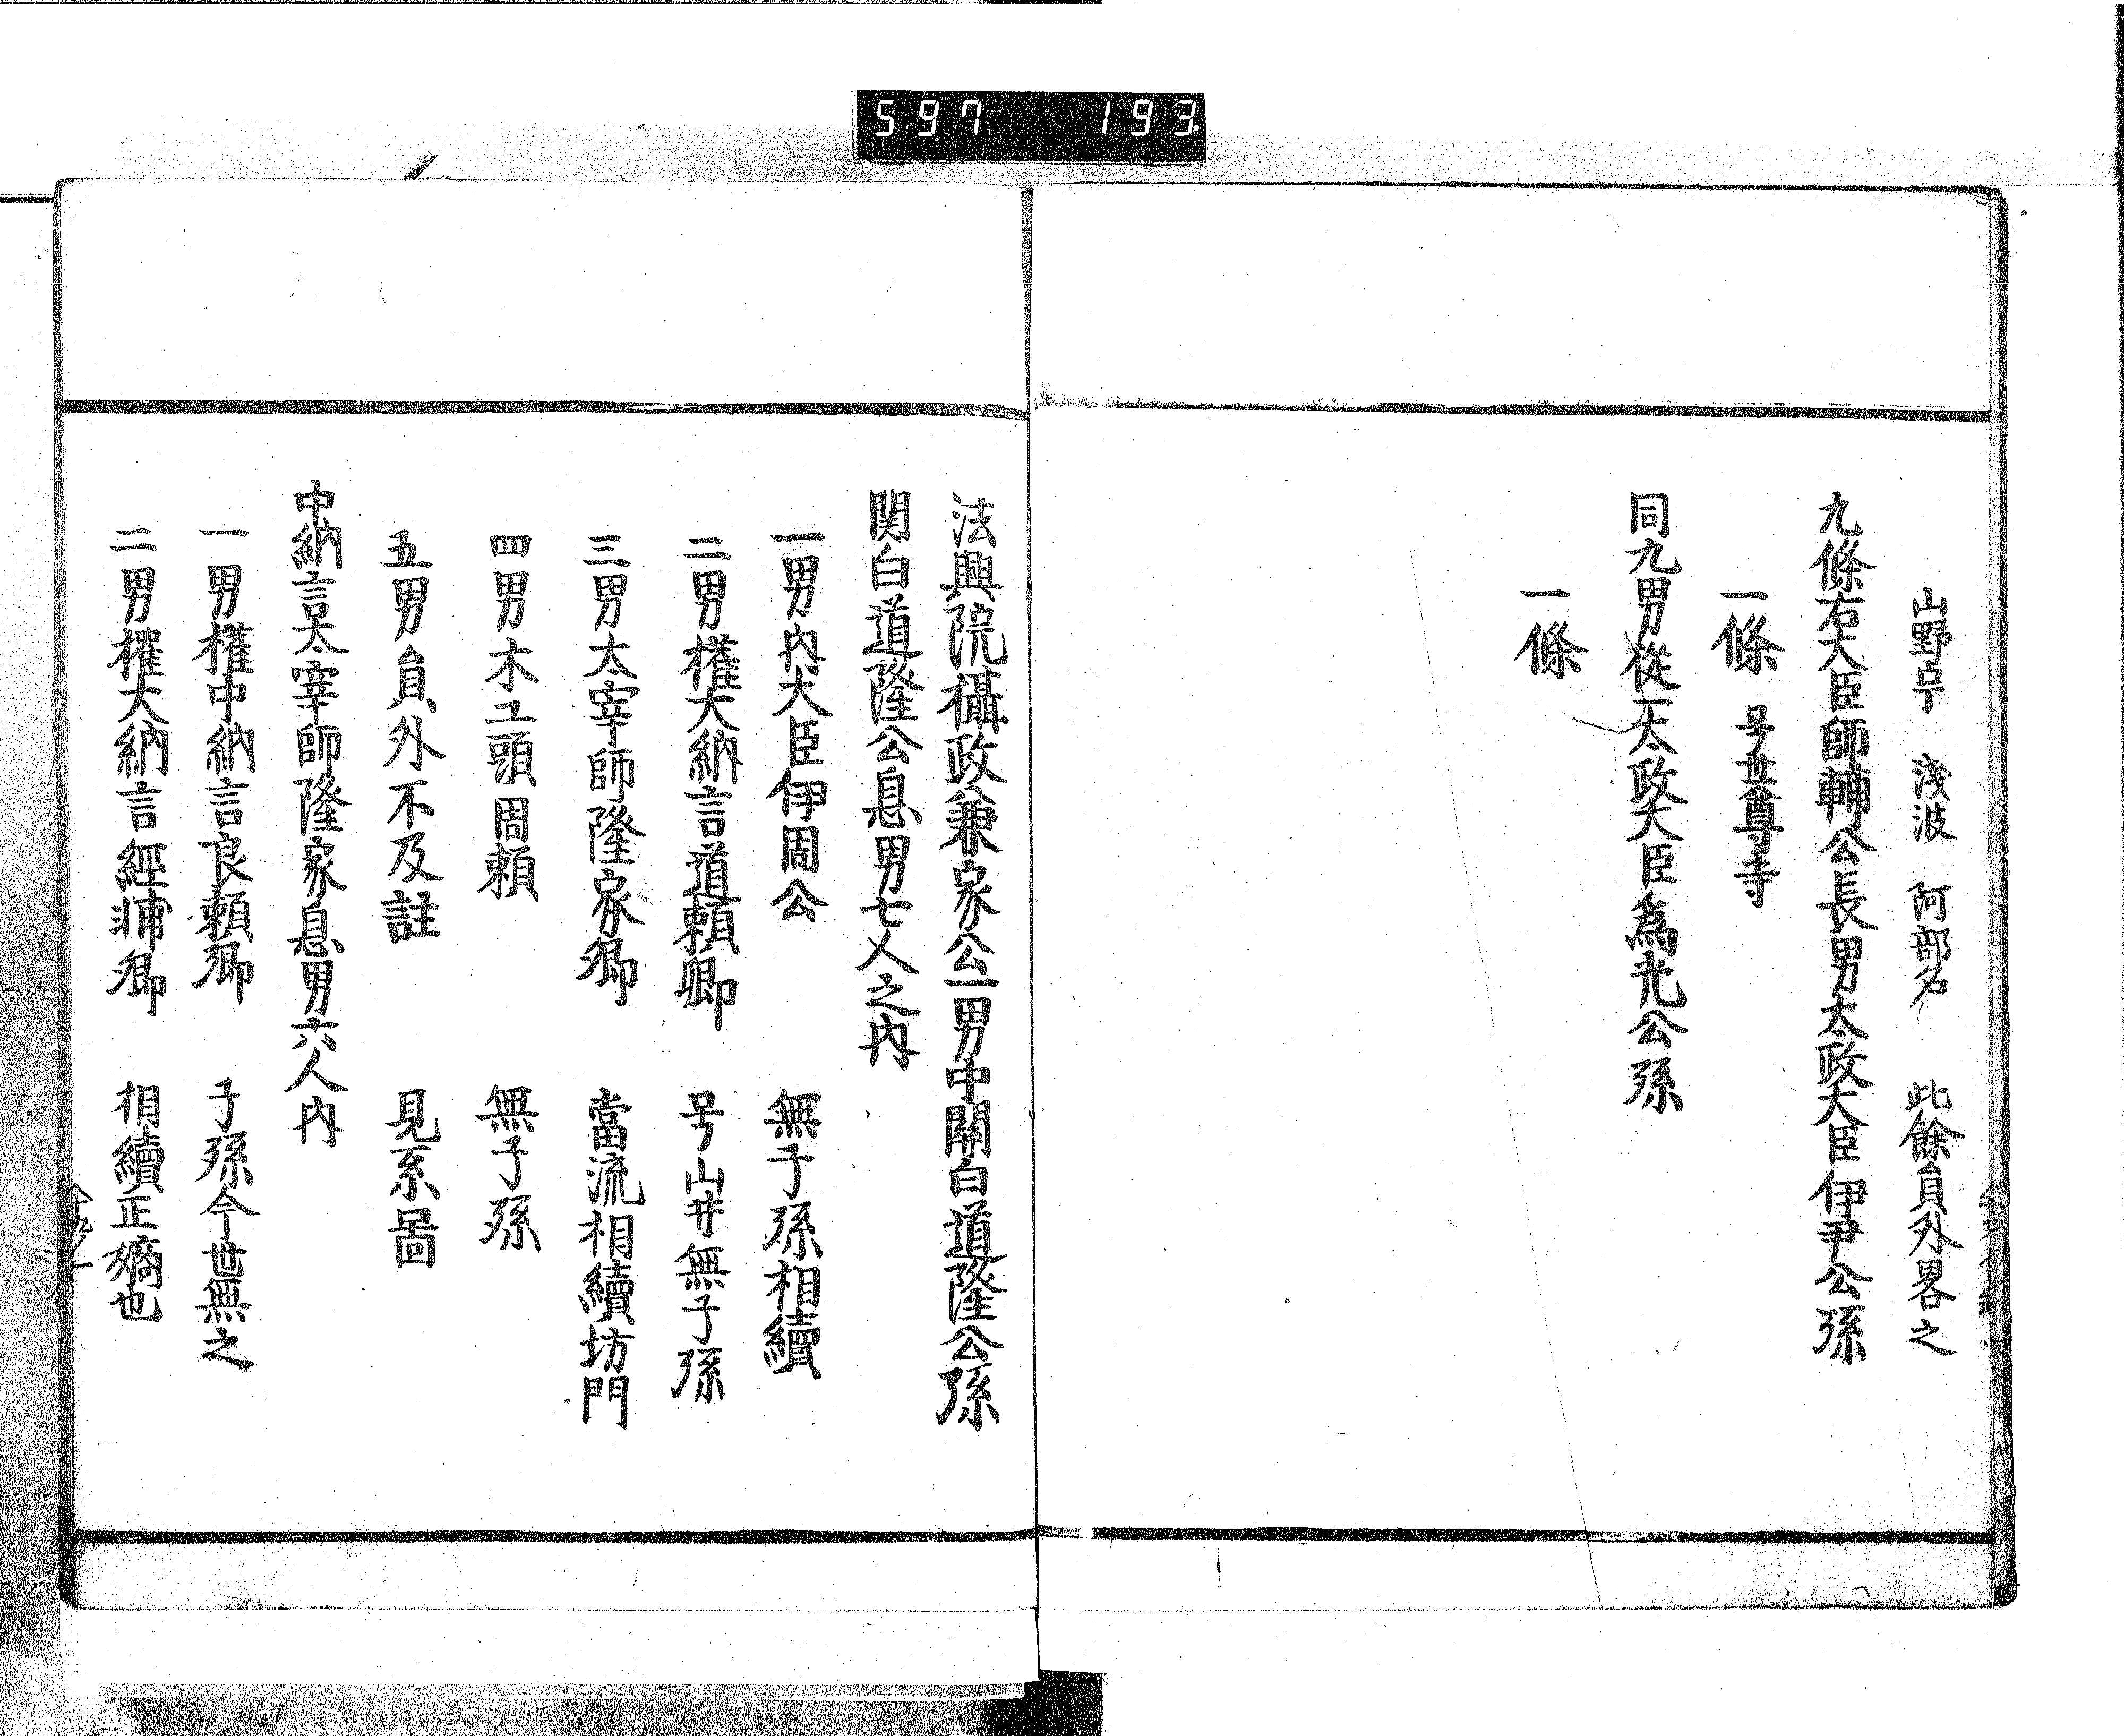 597 193
山野宀丁 淺波 阿部名 此餘員外畧之
九條右大臣師輔公長男太政大臣伊尹公孫
一條 号世尊寺
同九男從一太政大臣為光公孫
一條
法興院攝政兼家公一男中關白道隆公孫
関白道隆公息男七人之内
一男內大臣伊周公 無子孫相續
二男權大納言道賴卿 号山井無子孫
三男太宰師隆家卿 當流相續坊門
四男木工頭周賴 無子孫
五男員外不及註 見系啚
中納言太宰師隆家息男六人內
一男權中納言良賴卿 子孫今世無之
二男權大納言經輔卿 相續正嫡也